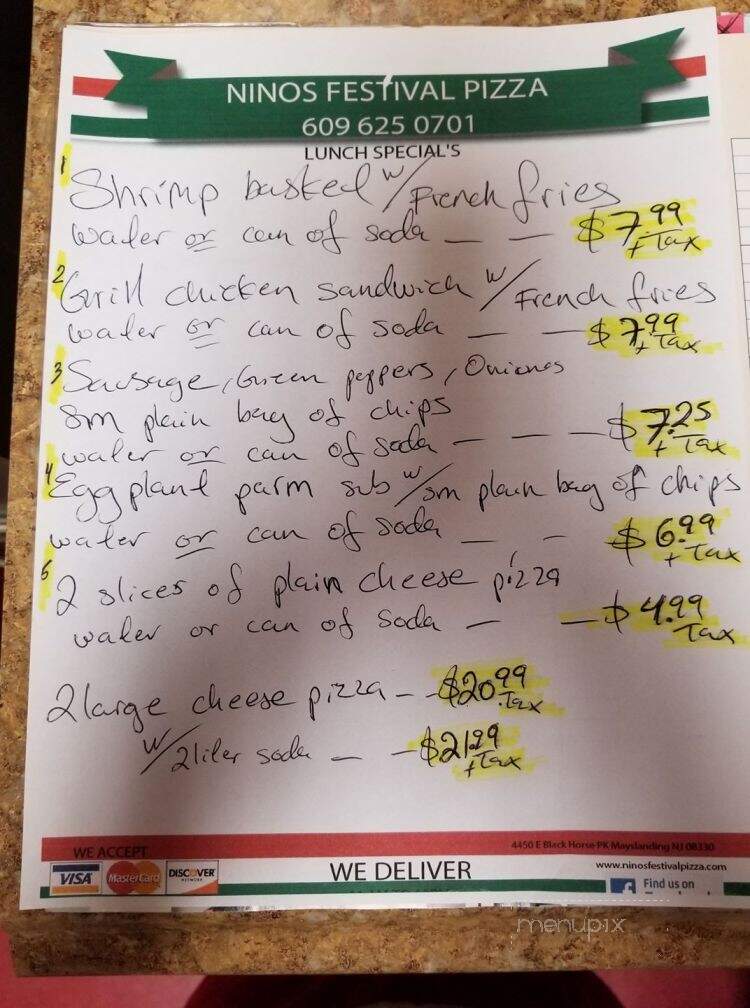 NINOS FESTIVAL PIZZA
609 625 0701
LUNCH SPECIAL'S
1 Shrimp basked w/ French fries
water or can of soda — — $7.99 + Tax
2 Grill chicken sandwich w/ French fries
water or can of soda — — $7.99 + Tax
3 Sausage, Green peppers, Onions
sm plain bag of chips
water or can of soda — — — $7.25 + Tax
4 Eggplant parm sub w/ sm plain bag of chips
water or can of soda — - $6.99 + Tax
5 2 slices of plain cheese pizza
water or can of soda — — $4.99 Tax
2 large cheese pizza — - $20.99 .Tax
w/ 2 liter soda — - $21.99 + Tax
WE ACCEPT
VISA MasterCard DISCOVER NETWORK
WE DELIVER
4450 E Black Horse PK Mayslanding NJ 08330
www.ninosfestivalpizza.com
f Find us on
menupix